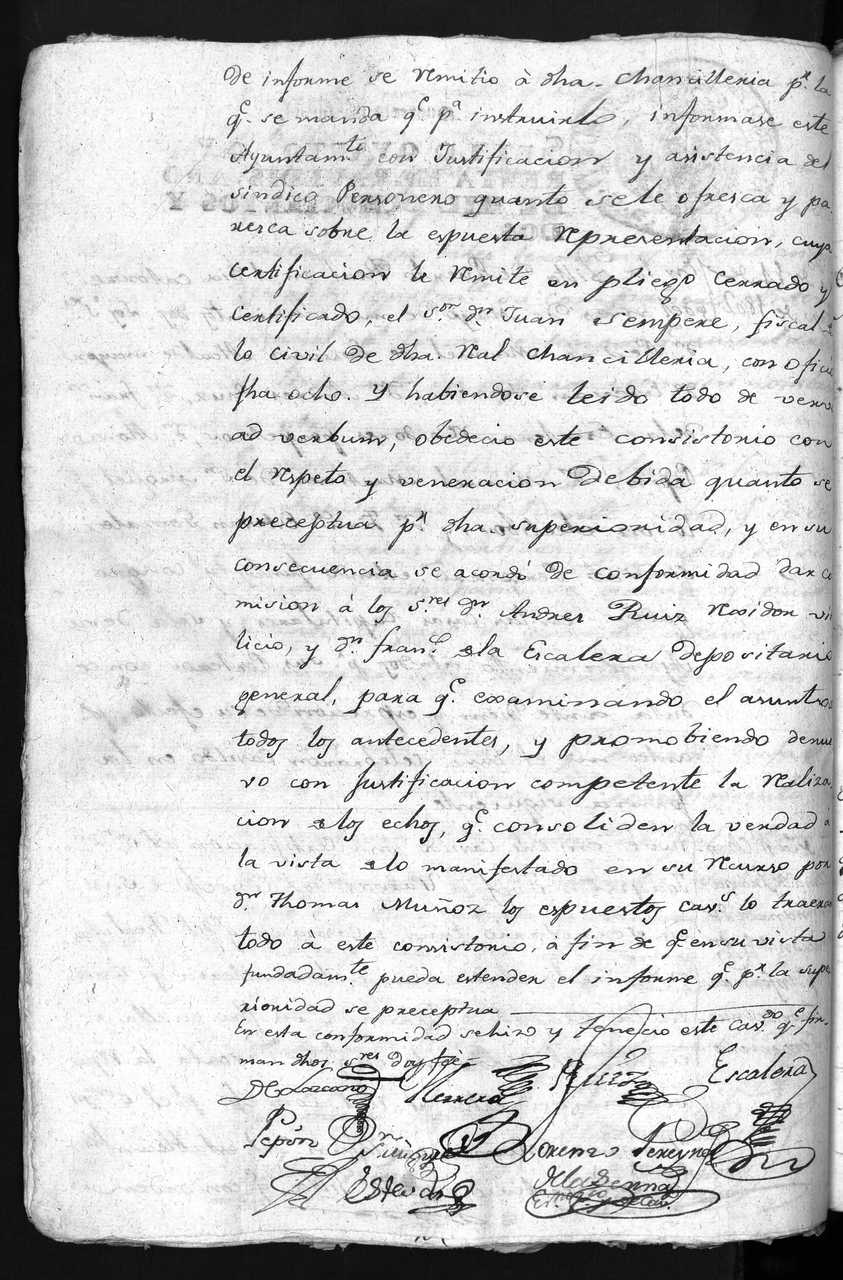 de informe se remitio à dha. Chancilleria pr. la
qe. se manda qe. pa instruirlo, informase este
Ayuntamte con Justificacion y asistencia del
sindico Personero quanto sele ofresca y pa-
resca sobre la espuesta representacion, cuya
certificacion le remite en pliego cerrado y
certificado, el sor. dn Juan Sempere, fiscal de
lo civil de dha. Real Chancilleria, con oficio
fha ocho. Y habiendose leido todo de verv
ad verbum, obedecio este consistorio con
el respeto y veneracion debida quanto se
preceptua pr. dha. superioridad, y en su
consecuencia se acordó de conformidad dar co
mision à los sres dn Andres Ruiz Rexidor vi
licio, y dn franco. dela Escalera depositario
general, para qe. examinando el asunto
todos los antecedentes, y promobiendo denue
vo con Justificacion competente la realiza
cion delos echos, qe. consoliden la verdad à
la vista delo manifestado en su recurso por
dn Thomas Muñoz los espuestos cavs. lo traeran
todo à este consistorio, à fin de qe en su vista
fundadamte. pueda estender el informe qe. pr la supe
rioridad se preceptua
En esta conformidad sehizo y fenecio este Cavdo qe fir-
man dhos. sres doy fee=
Herrera Ruiz Escalera
Pepin
Lorenzo Pereyra
Estevan